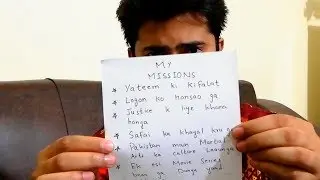 MY
MISSIONS
* Yateem ki Kifalat
* Logon ko hansao ga
* Justice k liye khara
honga
* Safai ka khayal kro ga
* Pakistan main Martial
Arts ka culture
* Ek esi Movie Series
ga Dunya yaad